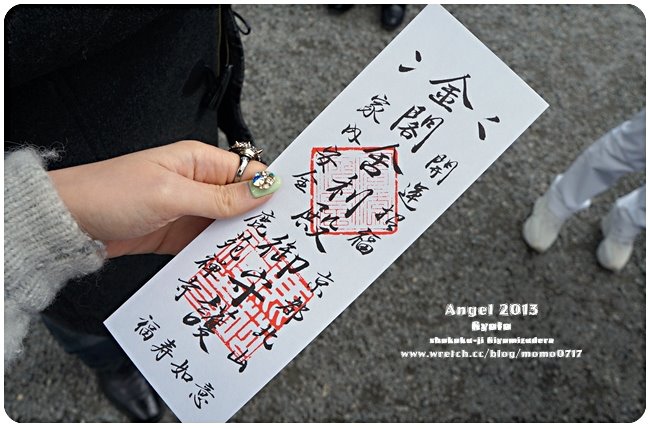 開運招福
金閣舎利殿
御守護
家内安全
京都北山
鹿苑禅寺
福寿如意
Angel 2013
Kyoto
shokoku-ji Kiyomizudera
www.wretch.cc/blog/momo0717